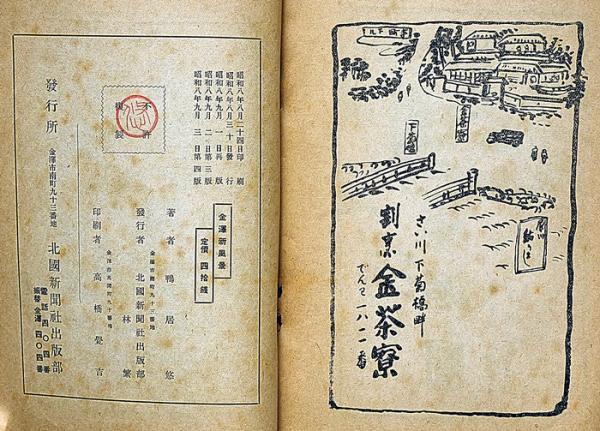 下菊橋
金茶寮
下菊橋
さい川下菊橋畔
割烹 金茶寮
でんわ一八一一番
昭和八年八月二十四日印刷
昭和八年八月三十日發行
昭和八年九月一日再版
昭和八年九月二日第三版
昭和八年九月三日第四版
金澤新風景
定價 四拾錢
著者 鴨居悠
金澤市南町九十三番地
發行者 北國新聞社出版部
林繁
印刷者 高橋覺吉
不許複製
發行所 金澤市南町九十三番地 北國新聞社出版部
電話四〇四番
振替金澤四〇四番